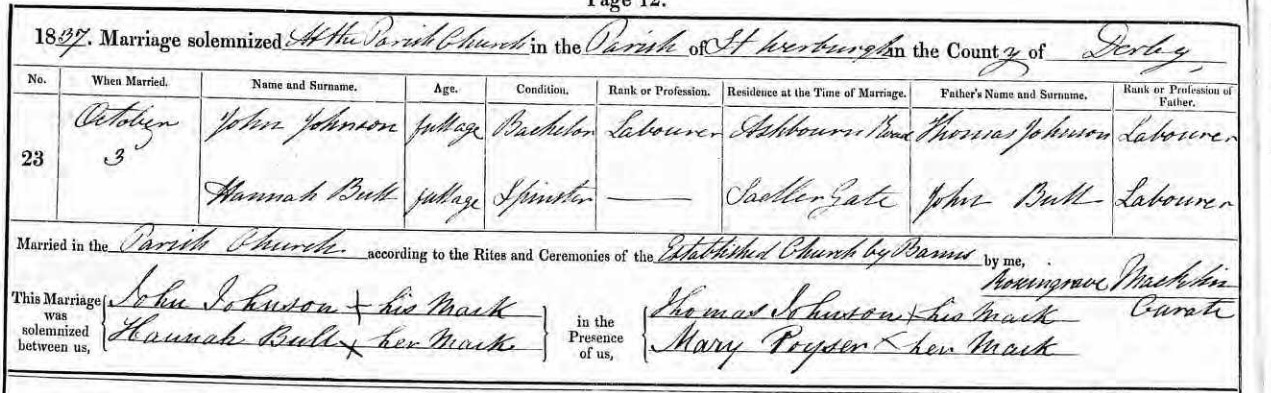 Page 12.
1837. Marriage solemnized At the Parish Church in the Parish of St Werburghs in the County of Derby
No. When Married. Name and Surname. Age. Condition. Rank or Profession. Residence at the Time of Marriage. Father's Name and Surname. Rank or Profession of Father.
23 October 3 John Johnson full age Bachelor Labourer Ashbourn Road Thomas Johnson Labourer
Hannah Bull full age Spinster — Sadler Gate John Bull Labourer
Married in the Parish Church according to the Rites and Ceremonies of the Established Church by Banns by me,
Roseingrave Macklin
Curate
This Marriage was solemnized between us, John Johnson x his Mark in the Presence of us, Thomas Johnson x his Mark
Hannah Bull x her Mark. Mary Poyser x her Mark